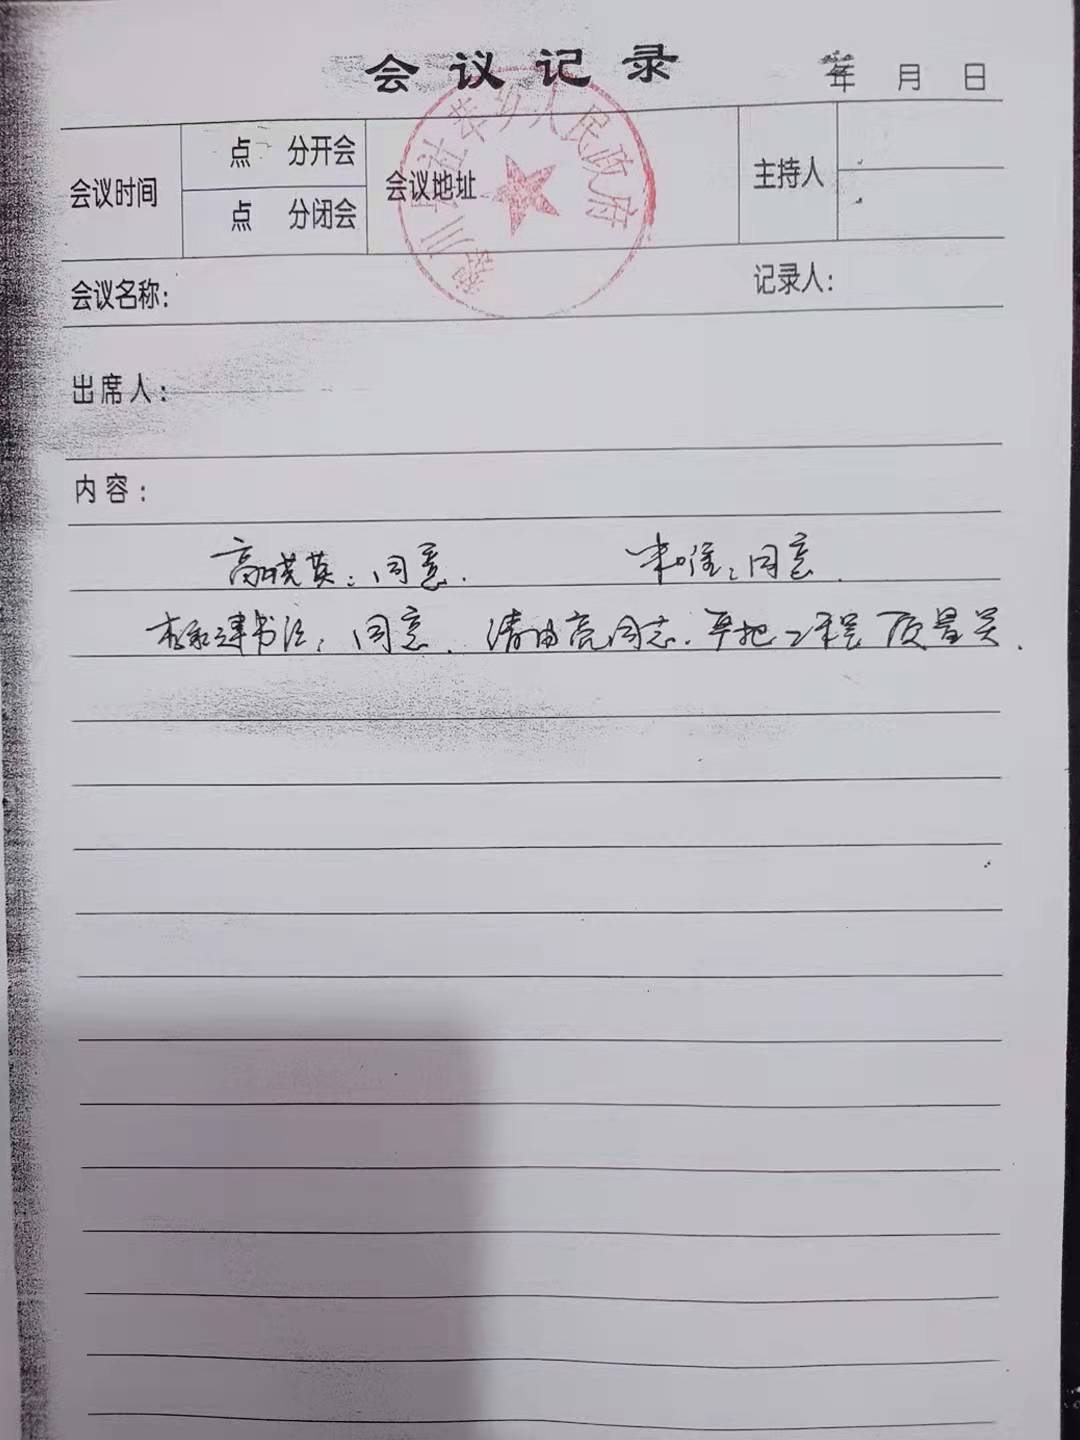 会议记录
年 月 日
会议时间
点 分开会
点 分闭会
会议地址
主持人
人民政府
会议名称：
记录人：
出席人：
内容：
高晓英：同意.
同意.
书记：同意. 请由亮同志. 严把工程质量关.